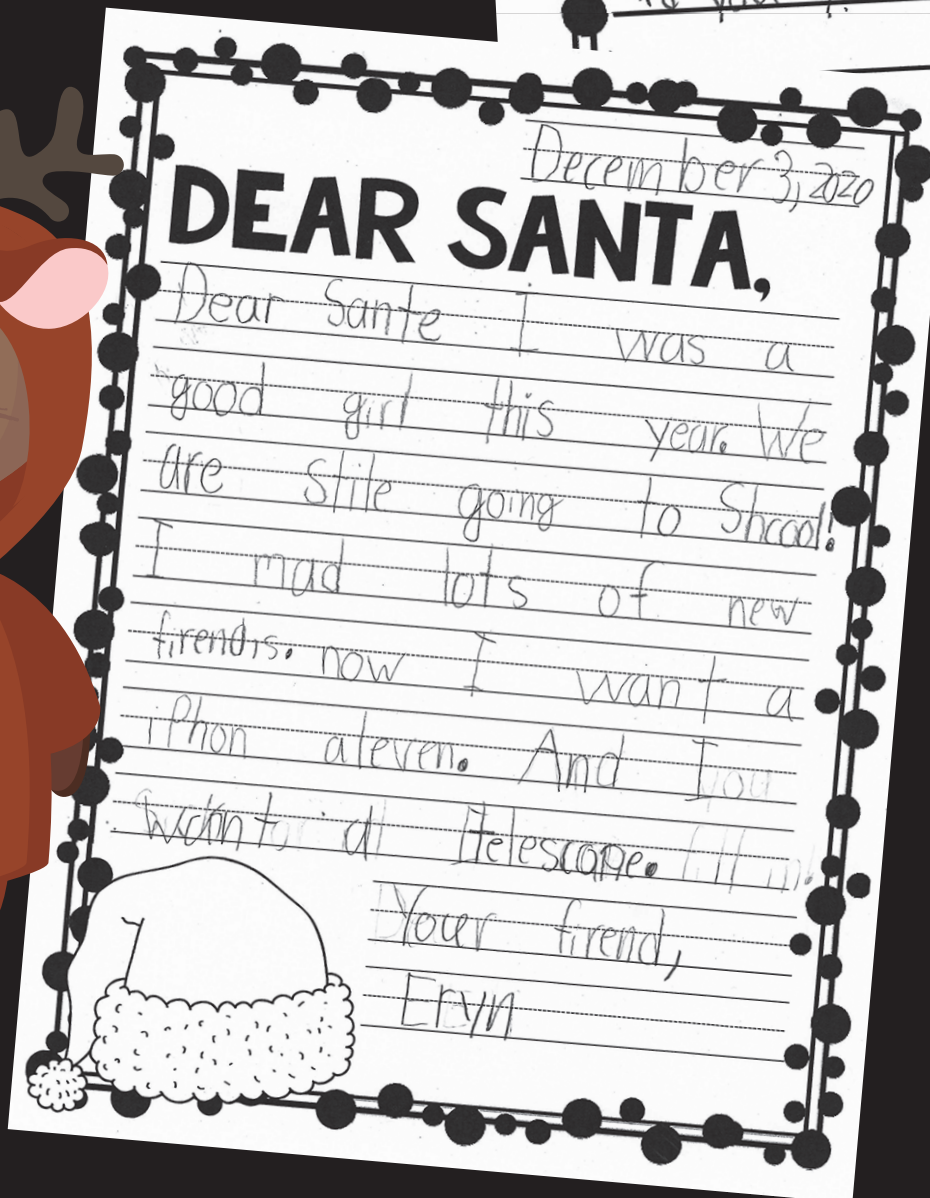 December 3, 2020
DEAR SANTA,
Dear Sante I was a
good girl this year. We
are Stile going to Shcool!
I mad lots of new
firends. now I want a
iPhon aleven. And I
want a telescape.
Your firend,
Eryn